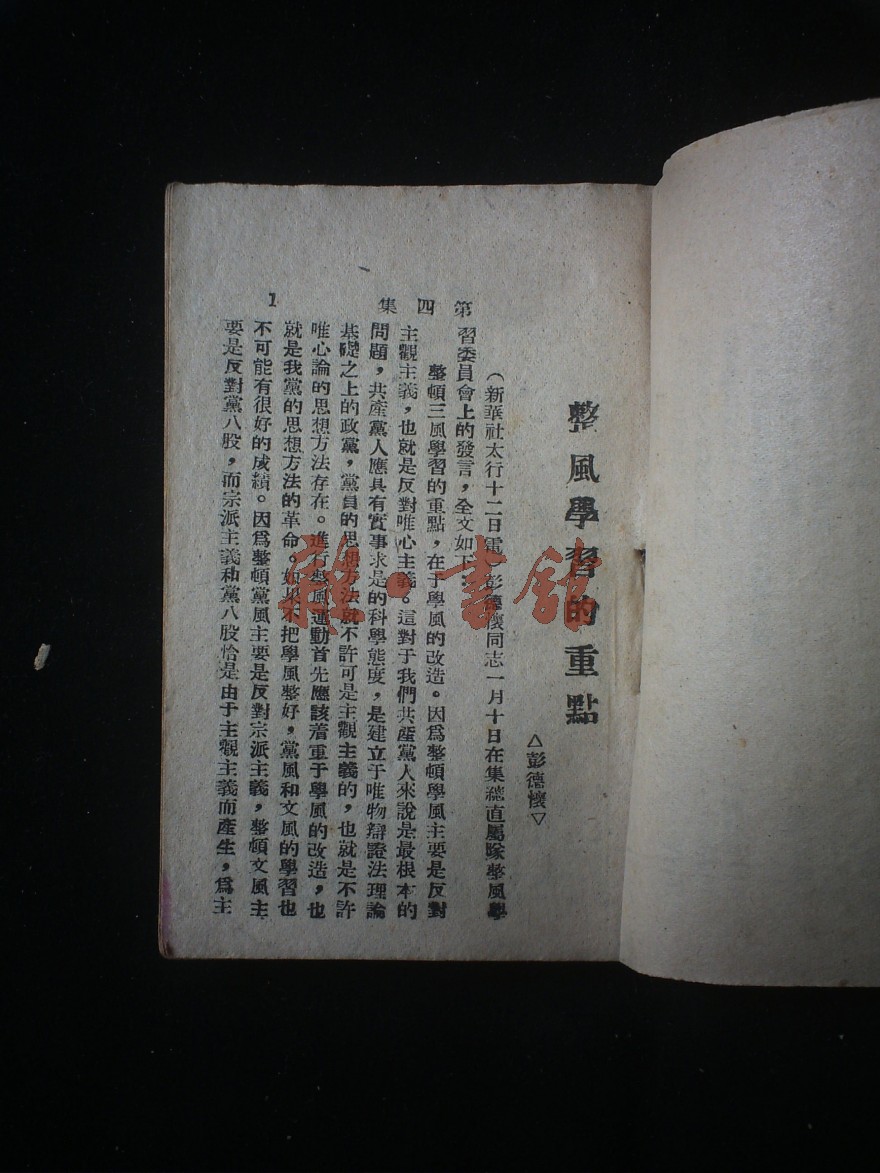 整風學習的重點
△彭德懷▽
（新華社太行十二日電）彭德懷同志一月十日在集總直屬隊整風學
習委員會上的發言，全文如下：
整頓三風學習的重點，在于學風的改造。因爲整頓學風主要是反對
主觀主義，也就是反對唯心主義。這對于我們共產黨人來說是最根本的
問題，共產黨人應具有實事求是的科學態度，是建立于唯物辯證法理論
基礎之上的政黨，黨員的思想方法就不許可是主觀主義的，也就是不許
唯心論的思想方法存在。進行整風運動首先應該着重于學風的改造，也
就是我黨的思想方法的革命。如果不把學風整好，黨風和文風的學習也
不可能有很好的成績。因爲整頓黨風主要是反對宗派主義，整頓文風主
要是反對黨八股，而宗派主義和黨八股恰是由于主觀主義而產生，爲主
第四集
1
雜·書館